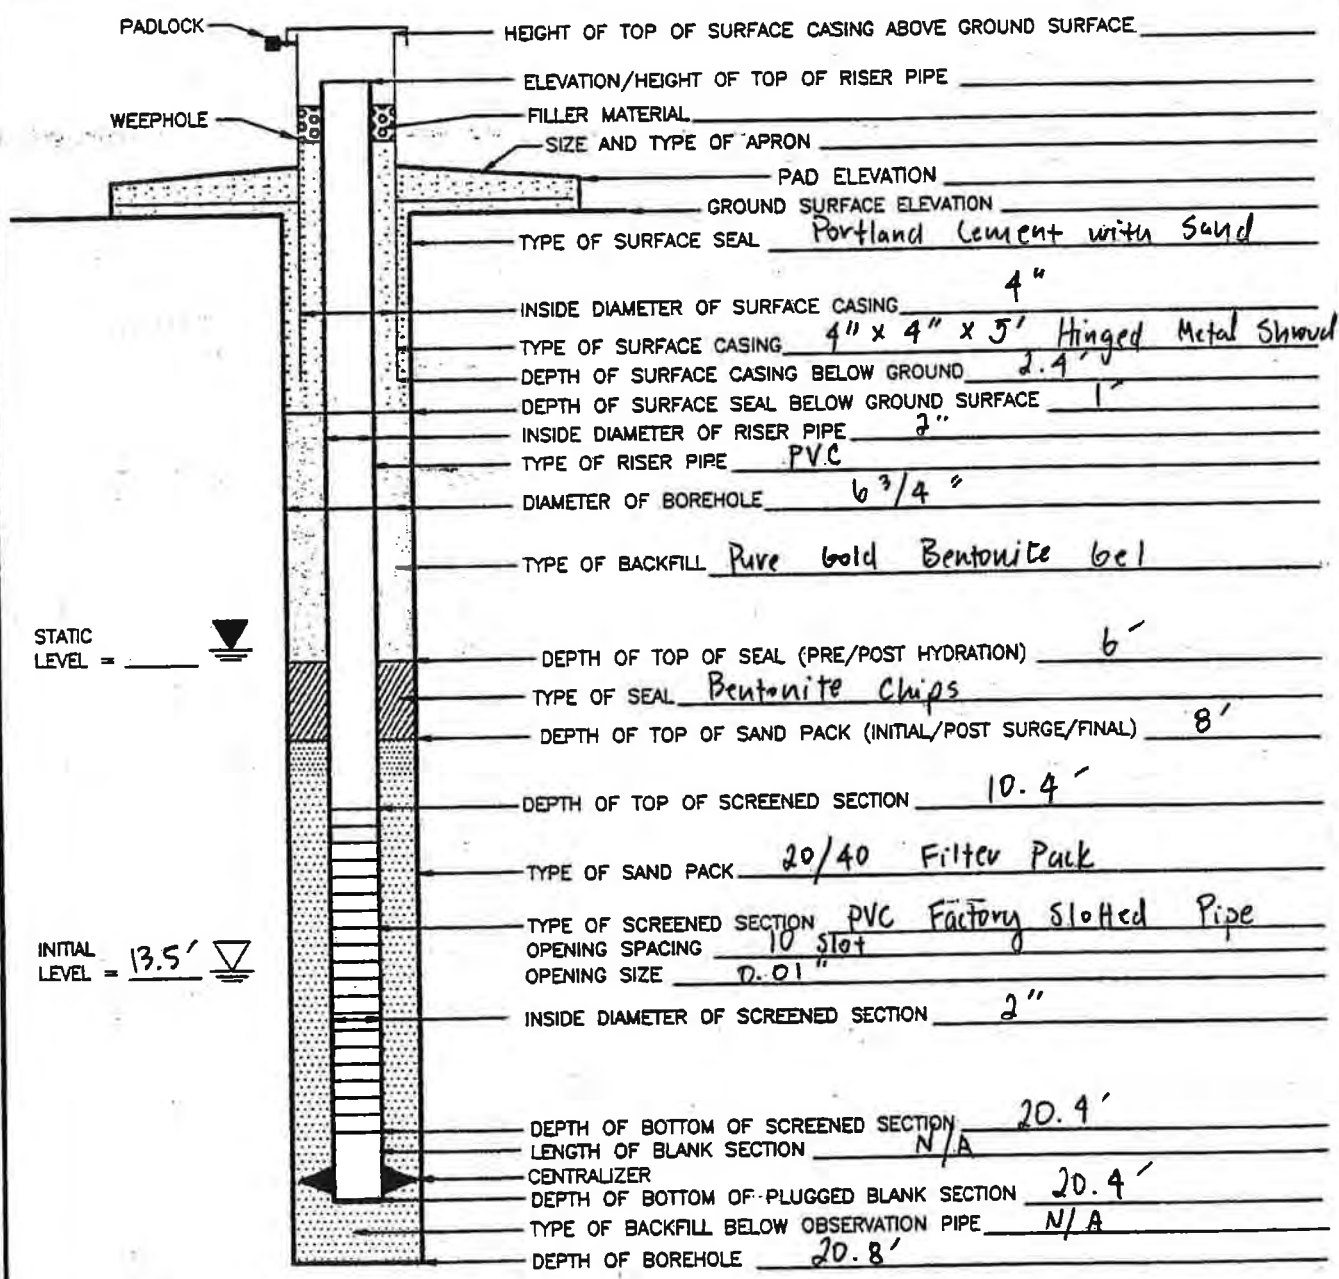 PADLOCK
HEIGHT OF TOP OF SURFACE CASING ABOVE GROUND SURFACE
ELEVATION/HEIGHT OF TOP OF RISER PIPE
WEEPHOLE
FILLER MATERIAL
SIZE AND TYPE OF APRON
PAD ELEVATION
GROUND SURFACE ELEVATION
TYPE OF SURFACE SEAL Portland Cement with Sand
INSIDE DIAMETER OF SURFACE CASING 4"
TYPE OF SURFACE CASING 4" x 4" x 5' Hinged Metal Shroud
DEPTH OF SURFACE CASING BELOW GROUND 2.4'
DEPTH OF SURFACE SEAL BELOW GROUND SURFACE 1'
INSIDE DIAMETER OF RISER PIPE 2"
TYPE OF RISER PIPE PVC
DIAMETER OF BOREHOLE 6 3/4"
TYPE OF BACKFILL Pure Gold Bentonite Gel
STATIC
LEVEL =
DEPTH OF TOP OF SEAL (PRE/POST HYDRATION) 6'
TYPE OF SEAL Bentonite Chips
DEPTH OF TOP OF SAND PACK (INITIAL/POST SURGE/FINAL) 8'
DEPTH OF TOP OF SCREENED SECTION 10.4'
TYPE OF SAND PACK 20/40 Filter Pack
TYPE OF SCREENED SECTION PVC Factory Slotted Pipe
OPENING SPACING 10 Slot
OPENING SIZE 0.01"
INITIAL
LEVEL = 13.5'
INSIDE DIAMETER OF SCREENED SECTION 2"
DEPTH OF BOTTOM OF SCREENED SECTION 20.4'
LENGTH OF BLANK SECTION N/A
CENTRALIZER
DEPTH OF BOTTOM OF PLUGGED BLANK SECTION 20.4'
TYPE OF BACKFILL BELOW OBSERVATION PIPE N/A
DEPTH OF BOREHOLE 20.8'